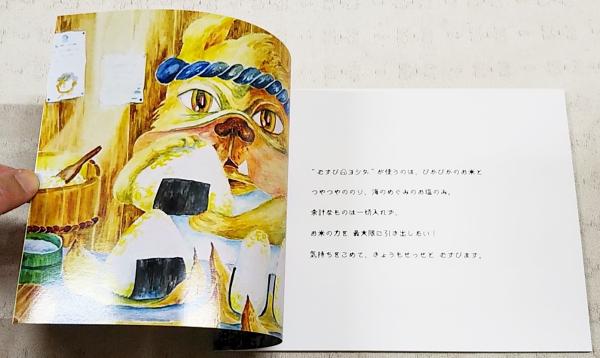 “むすび凸ヨシタ”が使うのは、ぴかぴかのお米と
つやつやののり、海のめぐみのお塩のみ。
余計なものは一切入れず、
お米の力を 最大限に引き出したい！
気持ちをこめて、きょうもせっせと むすびます。